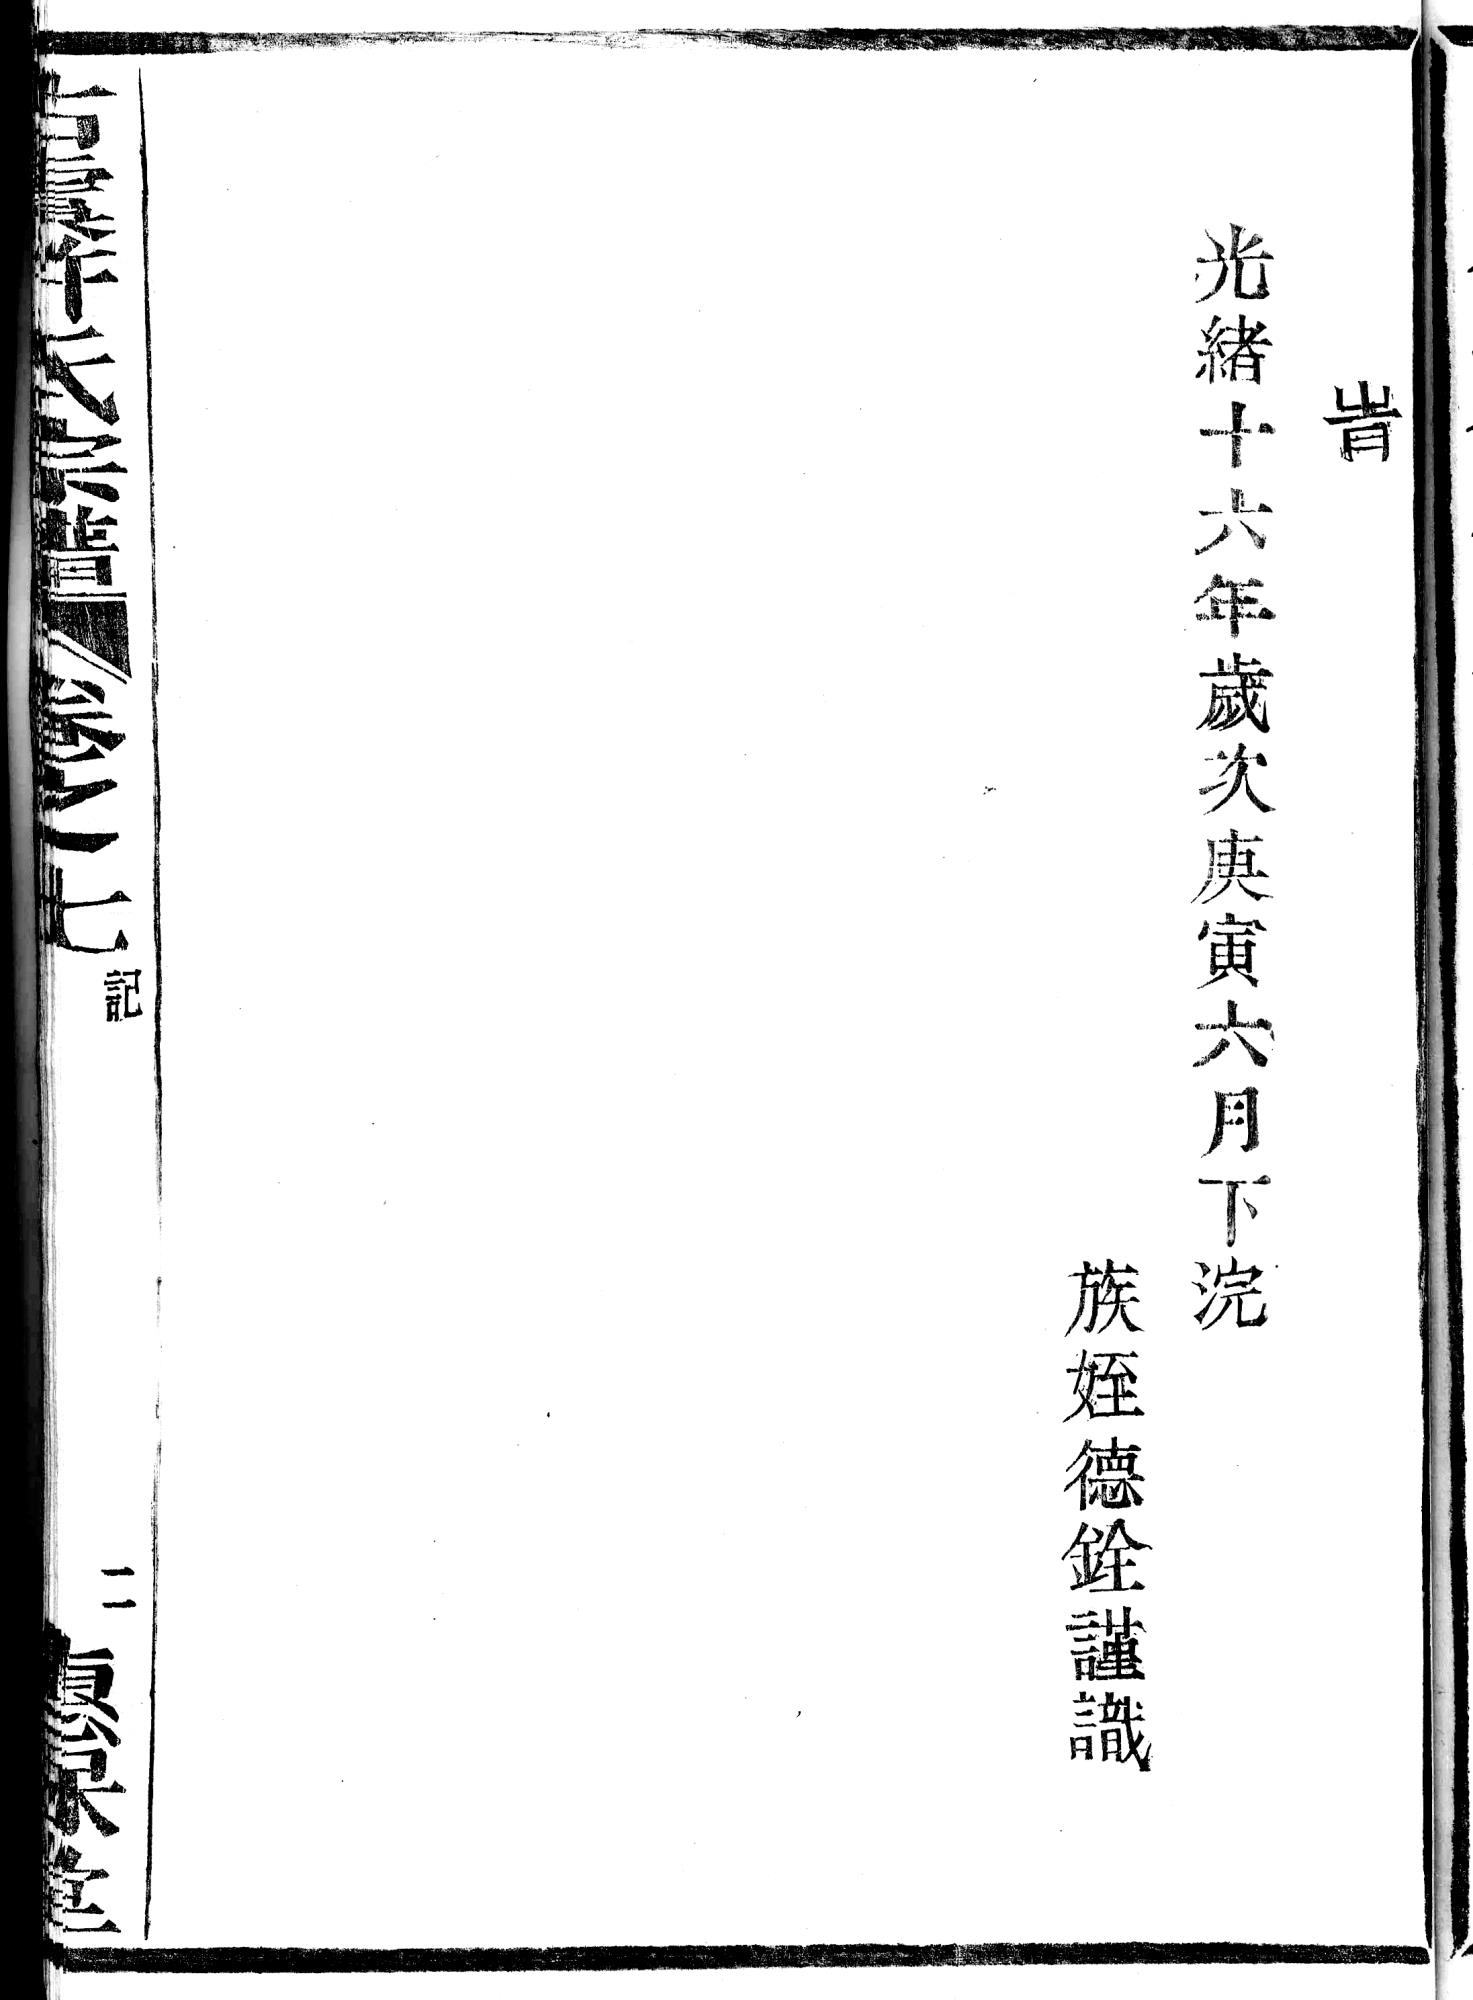 旹
光緒十六年歲次庚寅六月下浣
族姪德銓謹識
古虞許氏宗譜 卷之七
記
二
堂